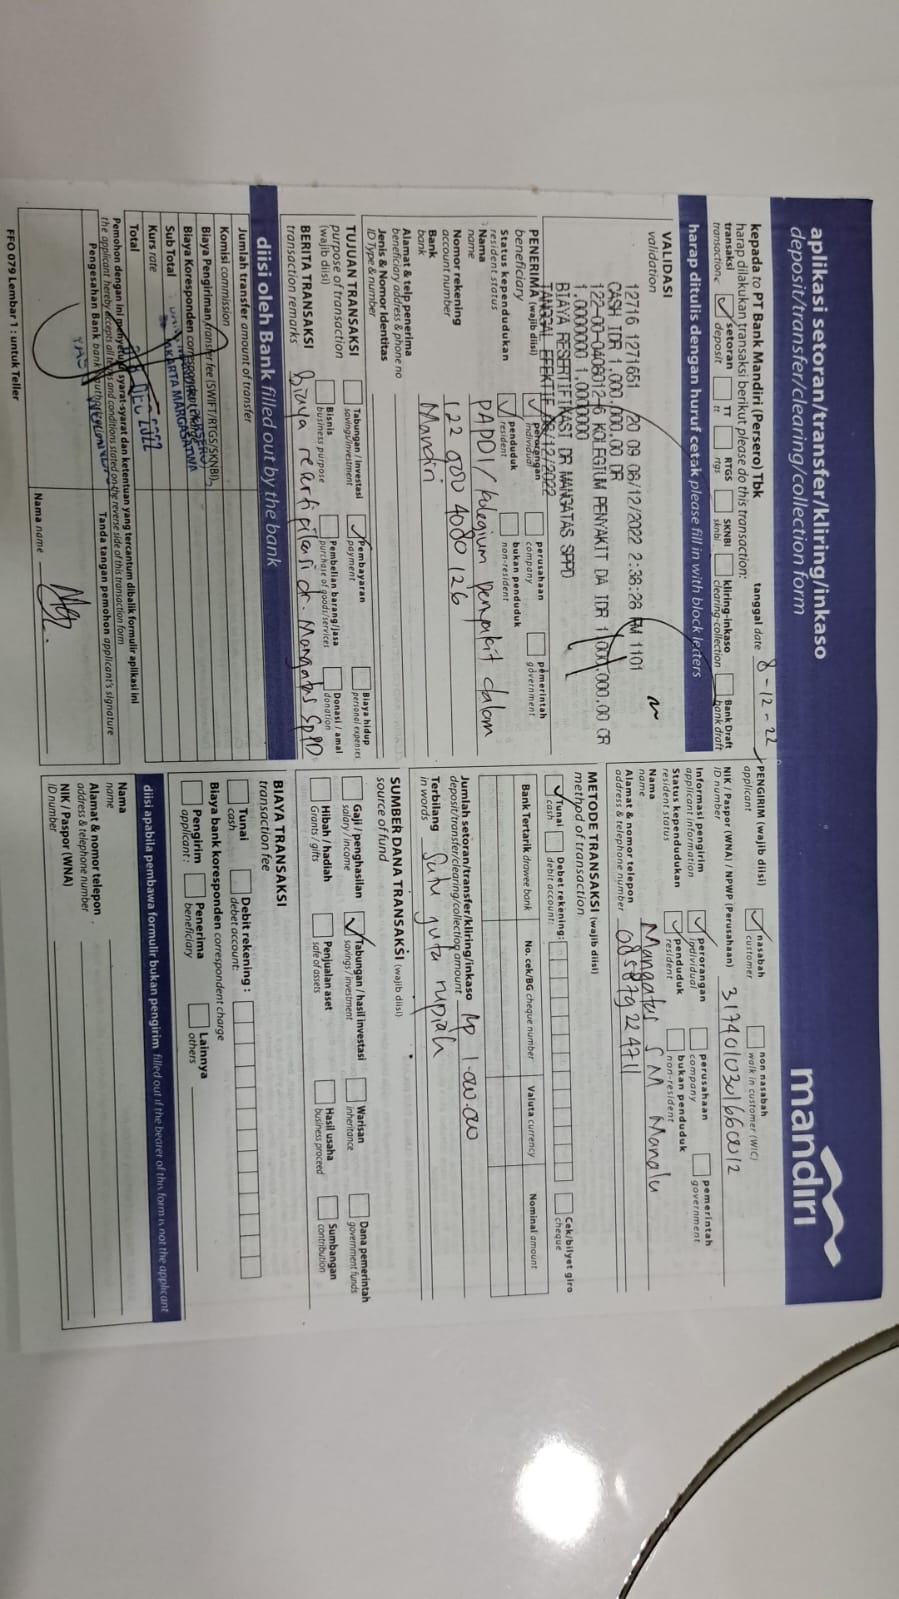 aplikasi setoran/transfer/kliring/inkaso
deposit/transfer/clearing/collection form
mandiri
kepada to PT Bank Mandiri (Persero) Tbk
tanggal date 8-12-22
harap dilakukan transaksi berikut please do this transaction:
transaksi
transactions
setoran
deposit
TT
tt
RTGS
rtgs
SKNBI
sknbi
kliring-inkaso
clearing-collection
Bank Draft
bank draft
harap ditulis dengan huruf cetak please fill in with block letters
VALIDASI
validation
12716 1271651 /20 09 08/12/2022 2:38:28 PM 1101
CASH IDR 1.000.000.00 DR
122-00-0408012-6 KOLEGIUM PENYAKIT DA IDR 1.000.000.00 CR
1.0000000 1.0000000
BIAYA RESERTIFIKASI DR MANGATAS SPPD
TANGGAL EFEKTIF 08/12/2022
PENERIMA (wajib diisi)
beneficiary
perorangan
individual
perusahaan
company
pemerintah
government
Status kependudukan
resident status
penduduk
resident
bukan penduduk
non-resident
Nama
name
PAPDI/kolegium penyakit dalam
Nomor rekening
account number
122 000 4080 126
Bank
bank
Mandiri
Alamat & telp penerima
beneficiary address & phone no
Jenis & Nomor Identitas
ID Type & number
TUJUAN TRANSAKSI
purpose of transaction
(wajib diisi)
Tabungan / investasi
savings/investment
Pembayaran
payment
Biaya hidup
personal expenses
Bisnis
business purpose
Pembelian barang/jasa
purchase of goods/services
Donasi / amal
donation
BERITA TRANSAKSI
transaction remarks
Biaya resertifikasi dr. Mangatas SpPD
diisi oleh Bank filled out by the bank
Jumlah transfer amount of transfer
Komisi commission
Biaya Pengiriman transfer fee (SWIFT/RTGS/SKNBI)
Biaya Koresponden
Sub Total
Kurs rate
Total
DEC 2022
JAKARTA MARGASATWA
Pemohon dengan ini menyetujui syarat-syarat dan ketentuan yang tercantum dibalik formulir aplikasi ini
the applicant hereby accepts all terms and conditions stated on the reverse side of this transaction form
Pengesahan Bank
Tanda tangan pemohon applicant's signature
Nama name
FFO 079 Lembar 1 : untuk Teller
PENGIRIM (wajib diisi)
applicant
nasabah
customer
non nasabah
walk in customer (WIC)
NIK / Paspor (WNA) / NPWP (Perusahaan)
ID number
Informasi pengirim
applicant information
perorangan
individual
perusahaan
company
pemerintah
government
Status kependudukan
resident status
penduduk
resident
bukan penduduk
non-resident
Nama
name
Mangatas S M Manalu
Alamat & nomor telepon
address & telephone number
METODE TRANSAKSI (wajib diisi)
method of transaction
Tunai
cash
Debet rekening:
debit account:
Cek/bilyet giro
cheque
Bank Tertarik drawee bank
No. cek/BG cheque number
Valuta currency
Nominal amount
Jumlah setoran/transfer/kliring/inkaso
deposit/transfer/clearing/collection amount
Rp 1.000.000
Terbilang
in words
Satu juta rupiah
SUMBER DANA TRANSAKSI (wajib diisi)
source of fund
Gaji / penghasilan
salary / income
Tabungan / hasil investasi
savings / investment
Warisan
inheritance
Dana pemerintah
government funds
Hibah / hadiah
Grants / gifts
Penjualan aset
sale of assets
Hasil usaha
business proceed
Sumbangan
contribution
BIAYA TRANSAKSI
transaction fee
Tunai
cash
Debit rekening :
debet account:
Biaya bank koresponden correspondent charge
Pengirim
applicant :
Penerima
beneficiary
Lainnya
others
diisi apabila pembawa formulir bukan pengirim filled out if the bearer of this form is not the applicant
Nama
name
Alamat & nomor telepon
address & telephone number
NIK / Paspor (WNA)
ID number